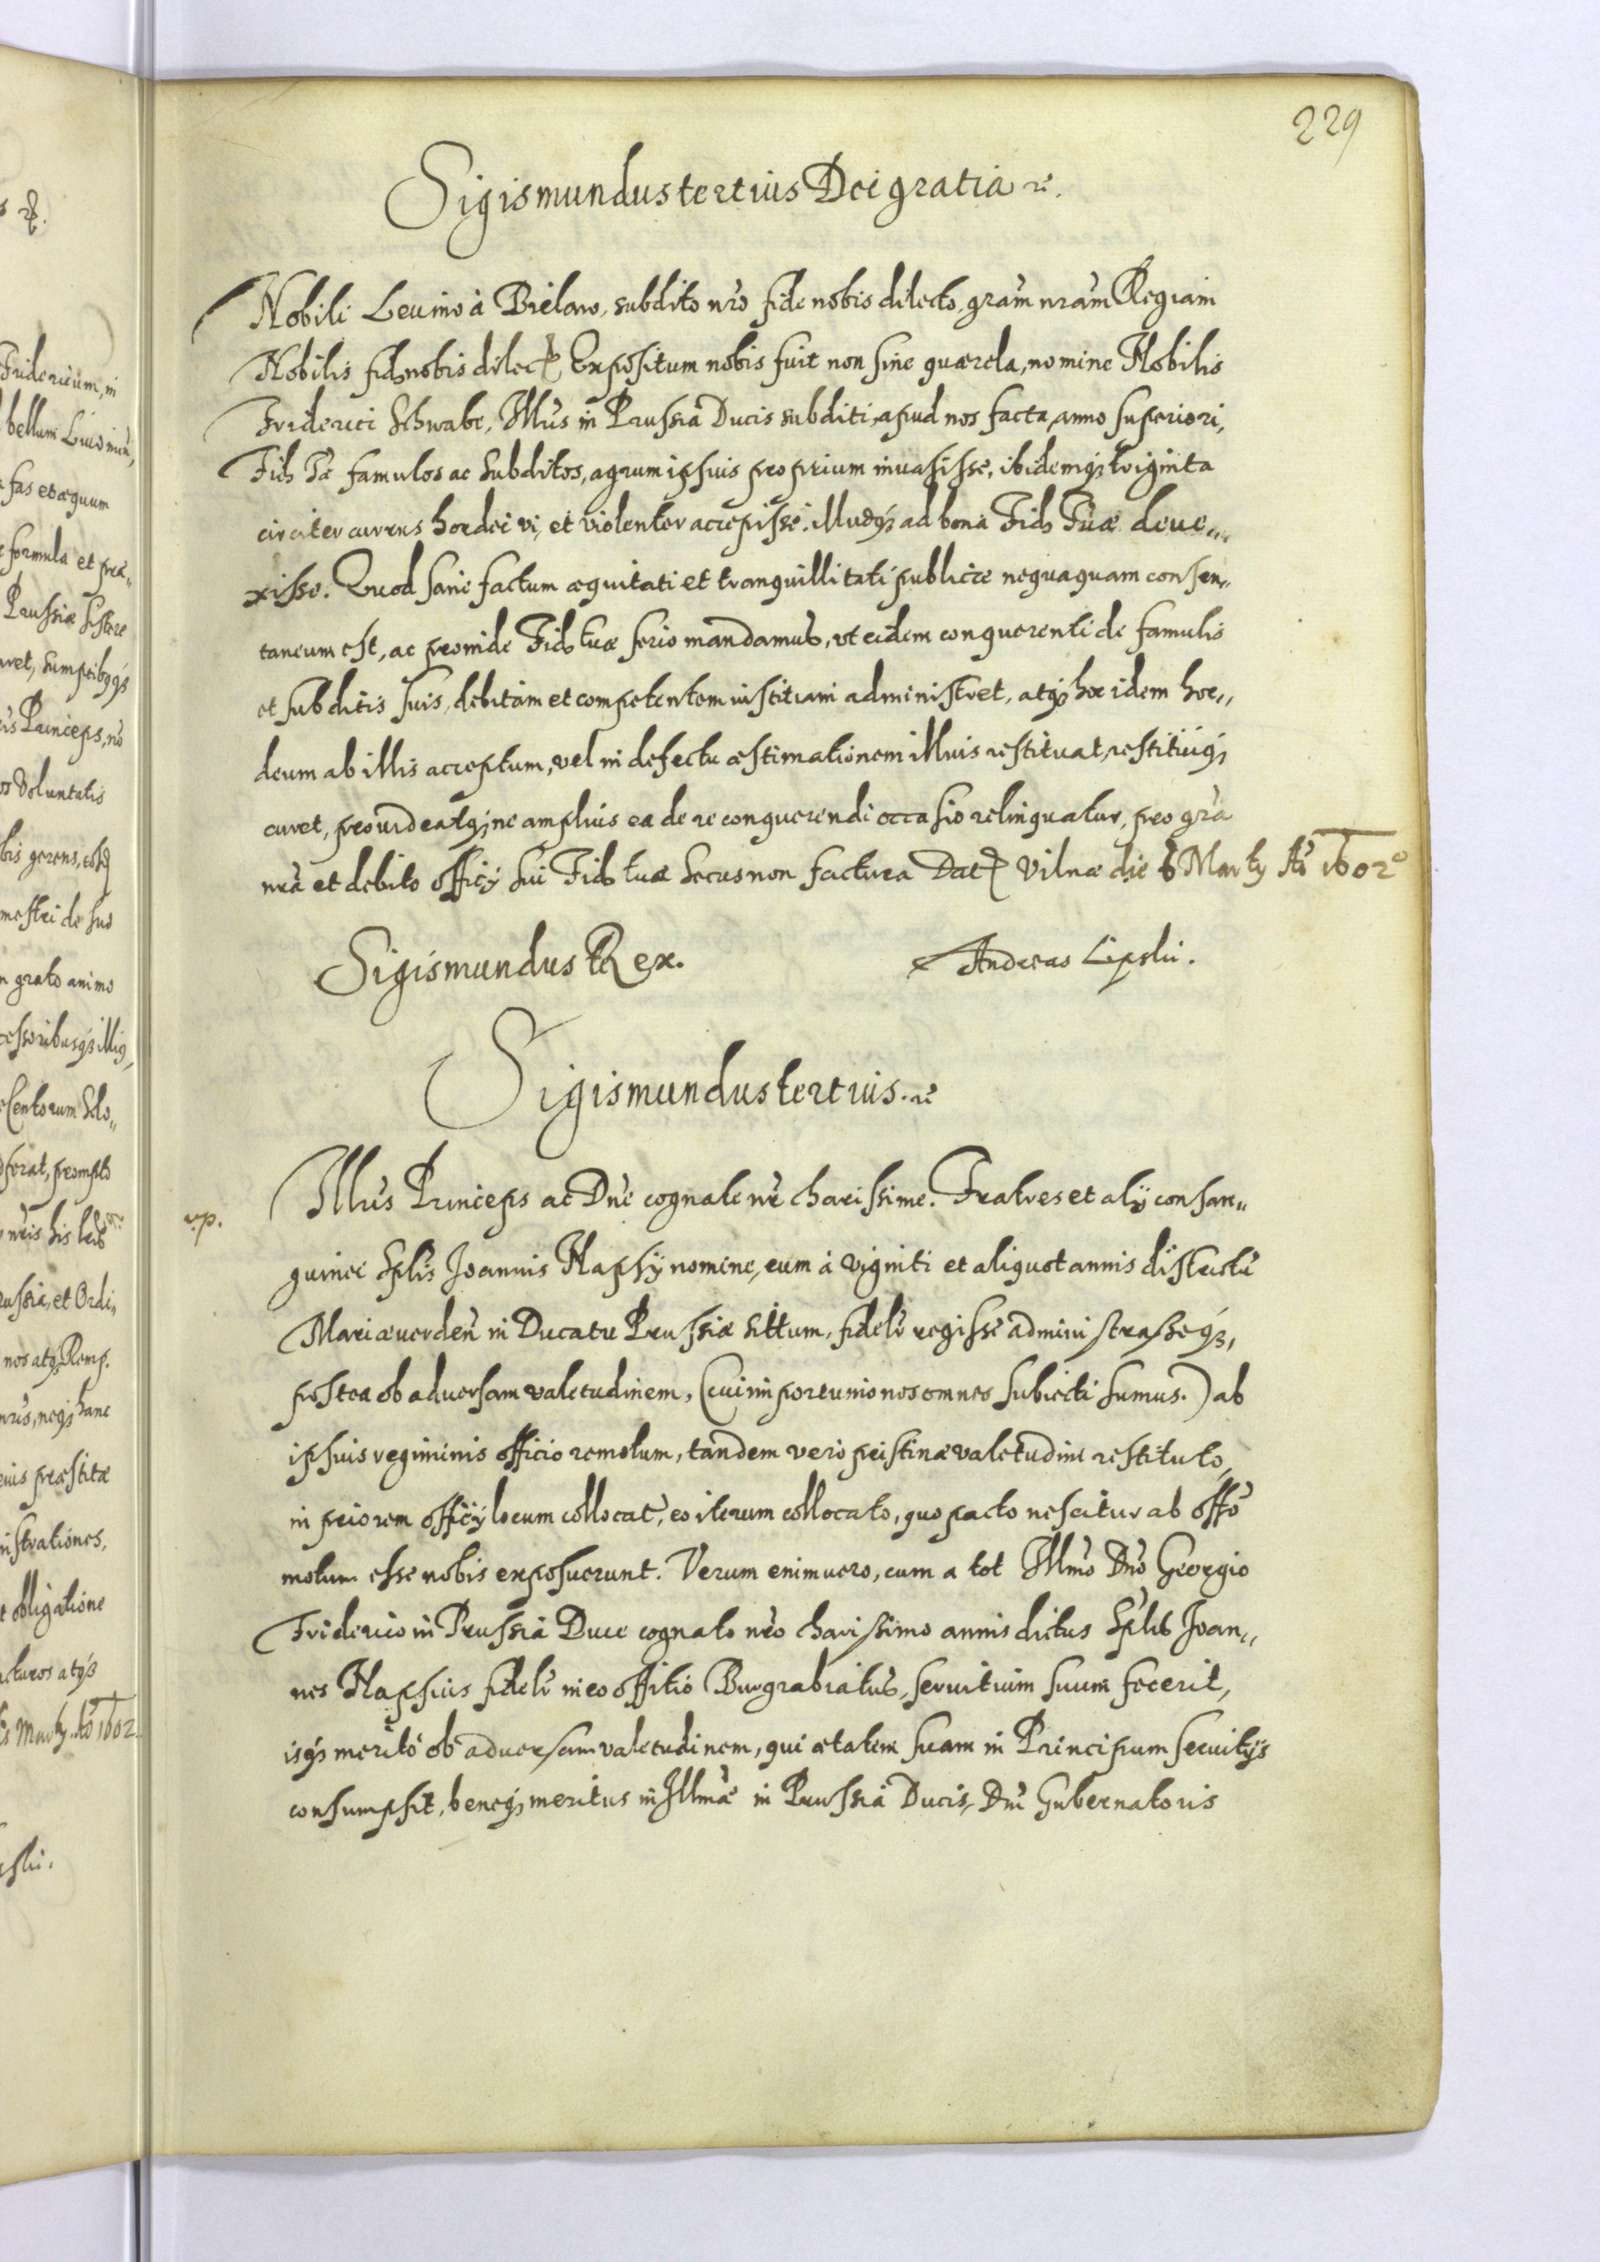 229
Sigismundus tertius Dei gratia &c.
Nobili Leuino à Bielaw, subdito nro fide nobis dilecto, gram nram Regiam
Nobilis fid. nobis dilect. Expositum nobis fuit non sine quærela, nomine Nobilis
Friderici Schwabe, Illus in Prussia Ducis subditi, apud nos facta, anno superiori,
Fid. Tæ famulos ac subditos, agrum ipsius proprium inuasisse, ibidemq; triginta
circiter currus hordei vi, et violenter accepisse, illudq; ad bona Fid. Tuæ deue„
xisse. Quod sane factum æquitati et tranquillitati publicæ nequaquam consen„
taneum est, ac proinde Fid. tuæ serio mandamus, vt eidem conquerenti de famulis
et subditis suis, debitam et competentem iustitiam administret, atq; hoc idem hor„
deum ab illis acceptum, vel in defectu æstimationem illius restituat, restituiq;
curet, prouideatq; ne amplius ea de re conquerendi occasio relinquatur, pro gra
nra et debito officij sui Fid. tuæ secus non factura Dat. Vilnæ die 6 Martij Ao 1602o
Sigismundus Rex.
Andreas Lipski.
Sigismundus tertius &c
Illus Princeps ac Dne cognate nr charissime. Fratres et alij consan„
v.p.
guinei Splis Joannis Hapsij nomine, eum à viginti et aliquot annis districtu
Mariæuerden in Ducatu Prussiæ sittum, fidelr regisse administrasseq;,
postea ob aduersam valetudinem, (cui importunio nos omnes subiecti sumus.) ab
ipsius regiminis officio remotum, tandem vero pristinæ valetudini restituto,
in priorem officij locum collocat, eo iterum collocato, quo pacto nescitur ab offo
motum esse nobis exposuerunt. Verum enimuero, cum a tot Illmo Dno Georgio
Friderico in Prussia Duce cognato nro charissimo annis dictus Splis Joan„
nes Hapsius fidelr in eo offitio Burgrabiatus, seruitium suum fecerit,
isq; merito ob aduersam valetudinem, qui ætatem suam in Principum seruitijs
consumpsit, beneq; meritus in Illmæ in Prussia Ducis, Dni Gubernatoris